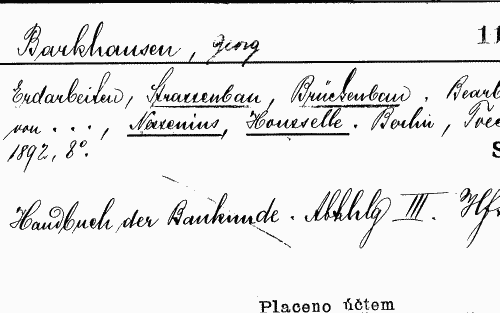 Barkhausen, Georg 11
Erdarbeiten, Strassenbau, Brückenbau. Bearb
von . . . , Nessenius, Housselle. Berlin, Toec
1892, 8°. S
Handbuch der Baukunde. Abthlg III. Hft
Placeno účtem